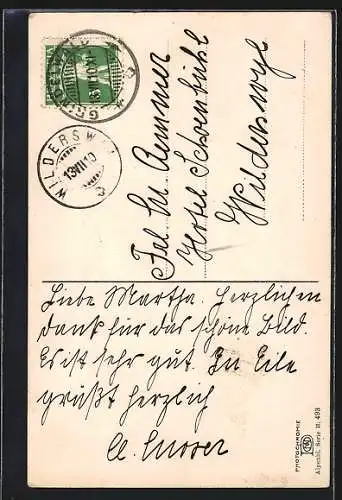 GRINDELWALD
WILDERSWIL
13VII10
Hotel Schönbühl
Wilderswyl
Liebe Martha. Herzlichen
dank für das schöne Bild.
Es ist sehr gut. In Eile
grüßt herzlich
PHOTOCHROMIE
Alpenbl. Serie II. 493